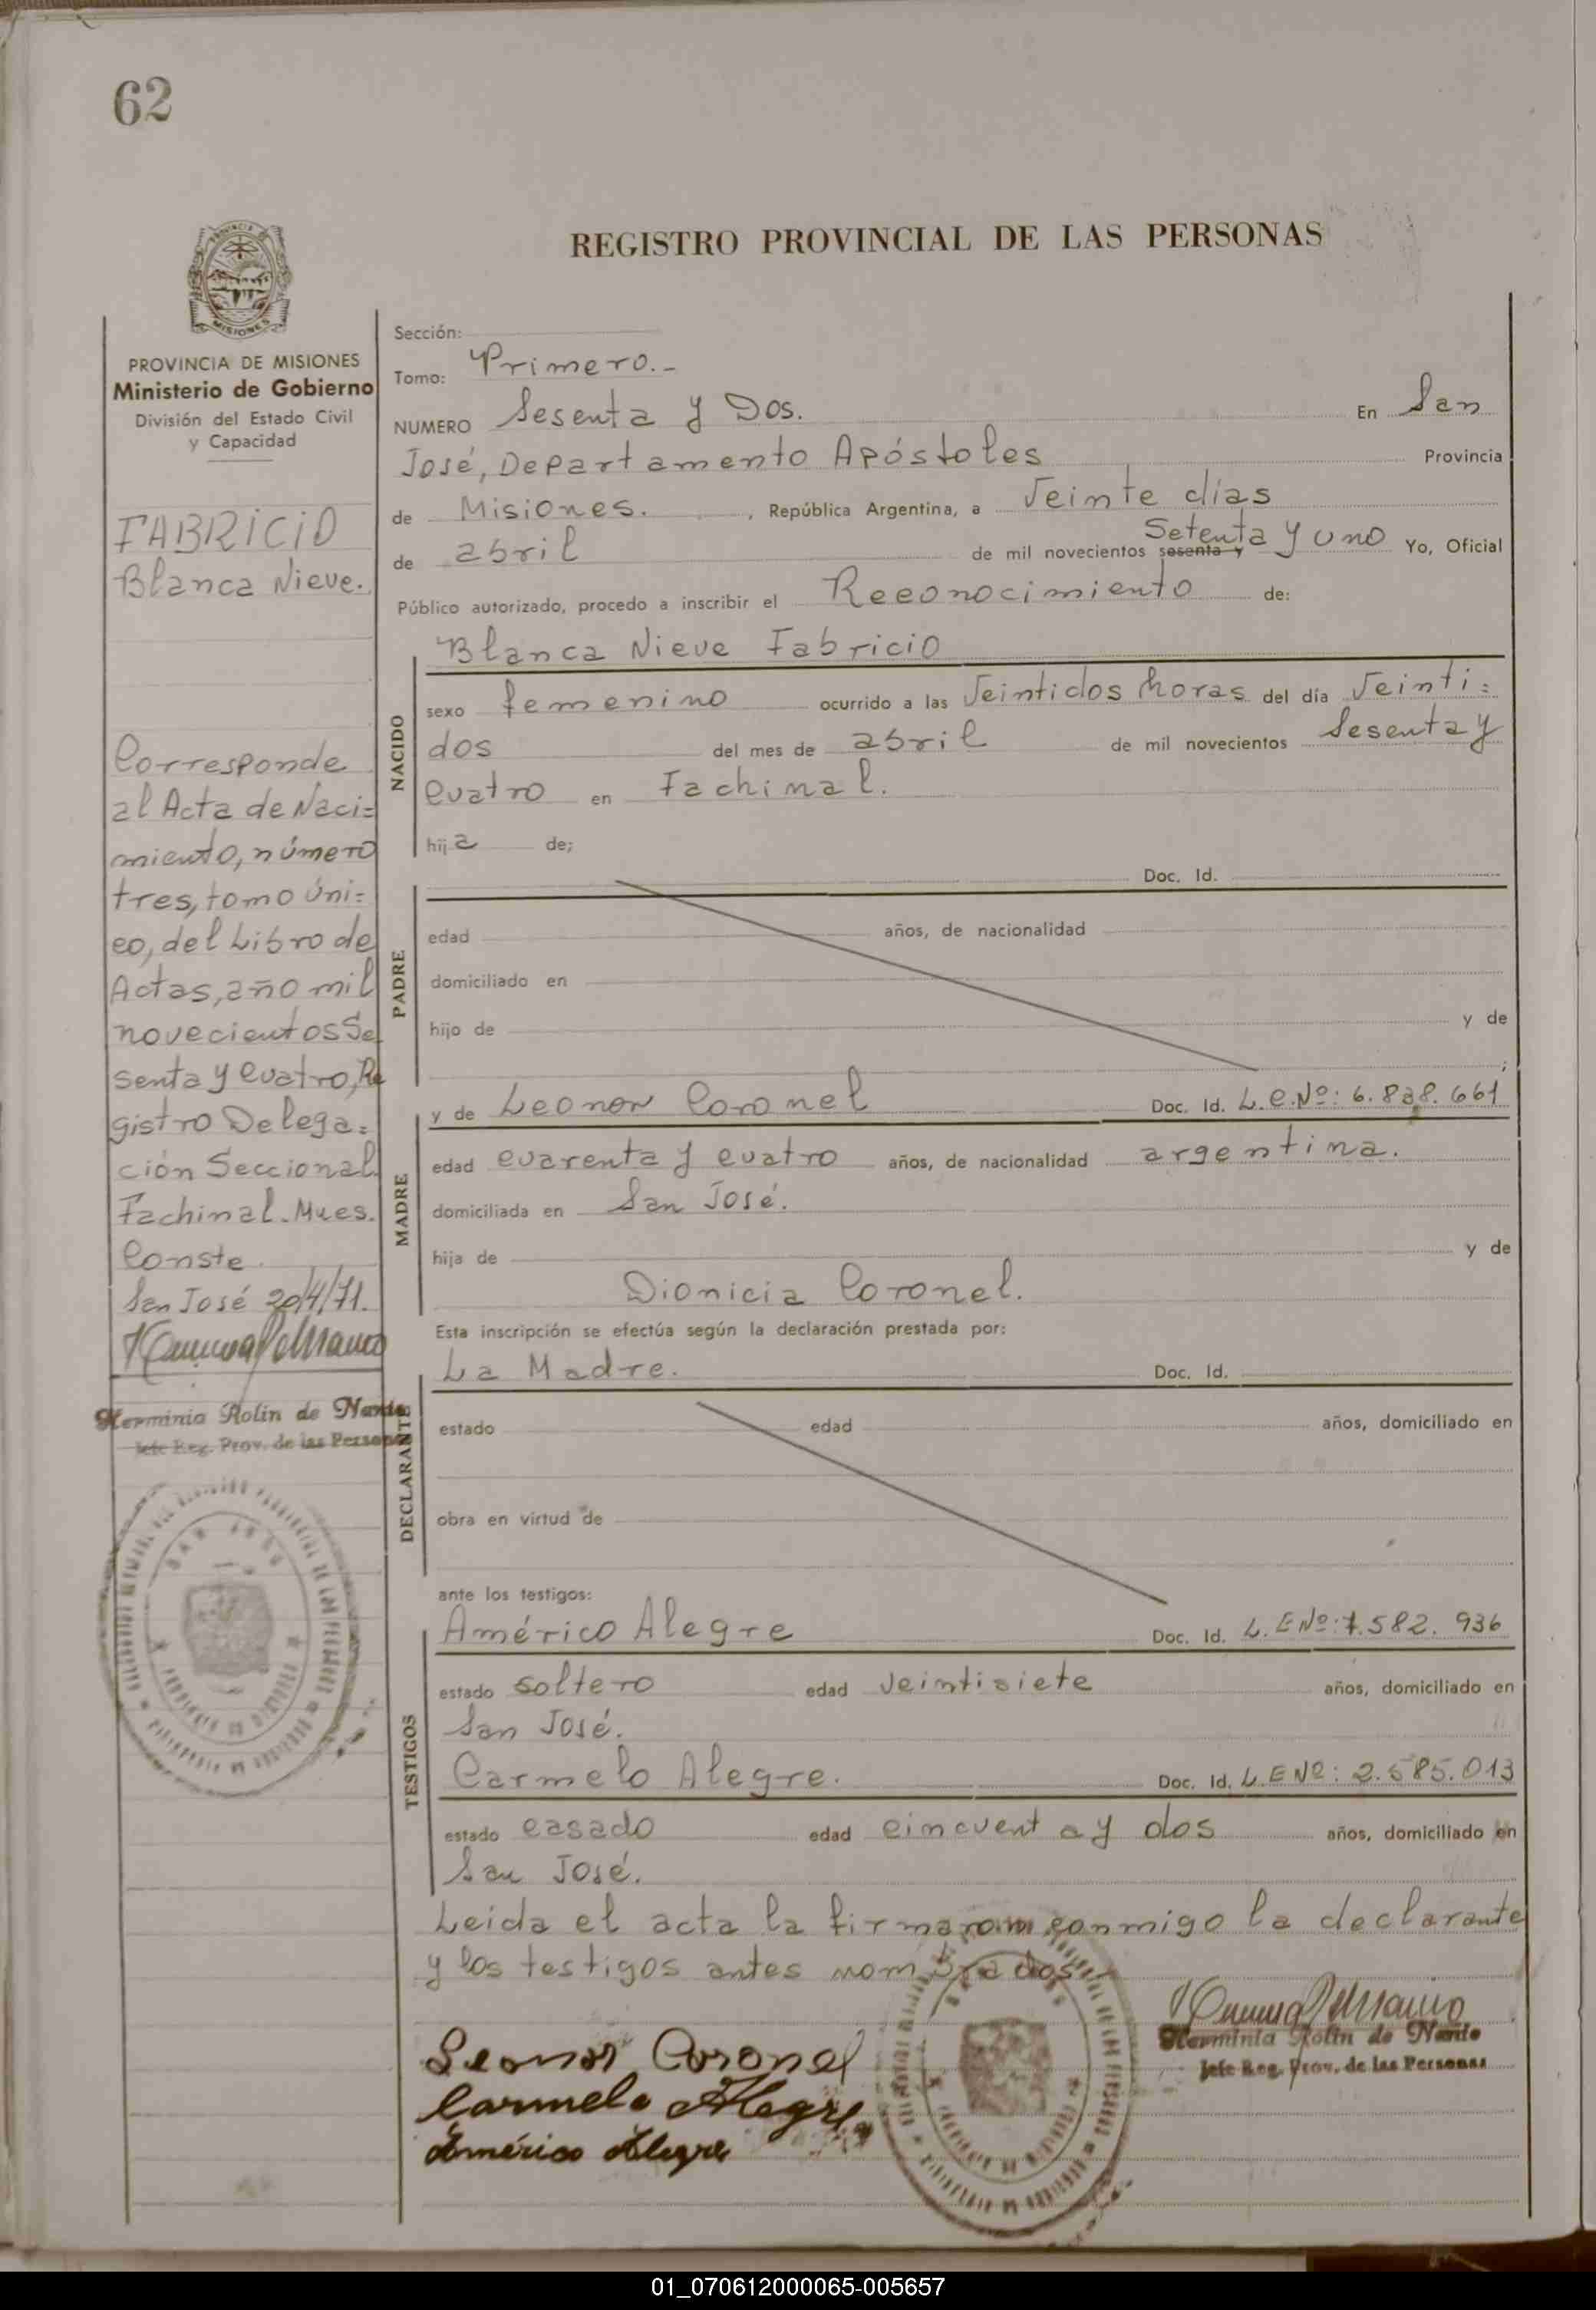 62
REGISTRO PROVINCIAL DE LAS PERSONAS
MISIONES
PROVINCIA DE MISIONES
Ministerio de Gobierno
División del Estado Civil
y Capacidad
FABRICIO
Blanca Nieve.
Corresponde
al Acta de Naci=
miento, número
tres, tomo úni=
co, del Libro de
Actas, año mil
novecientos Se
senta y cuatro, Re
gistro Delega=
ción Seccional
Fachinal. Mnes.
Conste
San José 20/4/71.
Herminia Rolin de Nardo
Jefe Reg. Prov. de las Personas
SAN JOSE
Sección:
Tomo: Primero.-
NUMERO Sesenta y Dos. En San
José, Departamento Apóstoles Provincia
de Misiones. , República Argentina, a Veinte días
de abril de mil novecientos sesenta y Setenta y uno Yo, Oficial
Público autorizado, procedo a inscribir el Reconocimiento de:
Blanca Nieve Fabricio
NACIDO
sexo femenino ocurrido a las Veintidos horas del día Veinti=
dos del mes de abril de mil novecientos Sesenta y
cuatro en Fachinal.
hija de;
Doc. Id.
PADRE
edad años, de nacionalidad
domiciliado en
hijo de y de
;
y de Leonor Coronel Doc. Id. L.C.Nº: 6.838.661
MADRE
edad cuarenta y cuatro años, de nacionalidad argentina.
domiciliada en San José.
hija de y de
Dionicia Coronel.
Esta inscripción se efectúa según la declaración prestada por:
La Madre. Doc. Id.
DECLARANTE
estado edad años, domiciliado en
obra en virtud de
ante los testigos:
Américo Alegre Doc. Id. L.E Nº: 7.582.936
TESTIGOS
estado soltero edad veintisiete años, domiciliado en
San José.
Carmelo Alegre. Doc. Id. L.E Nº: 2.585.013
estado casado edad cincuenta y dos años, domiciliado en
San José.
Leida el acta la firmaron conmigo la declarante
y los testigos antes nombrados
Leonor Coronel
Carmelo Alegre
Américo Alegre
Herminia Rolin de Nardo
Jefe Reg. Prov. de las Personas
01_070612000065-005657